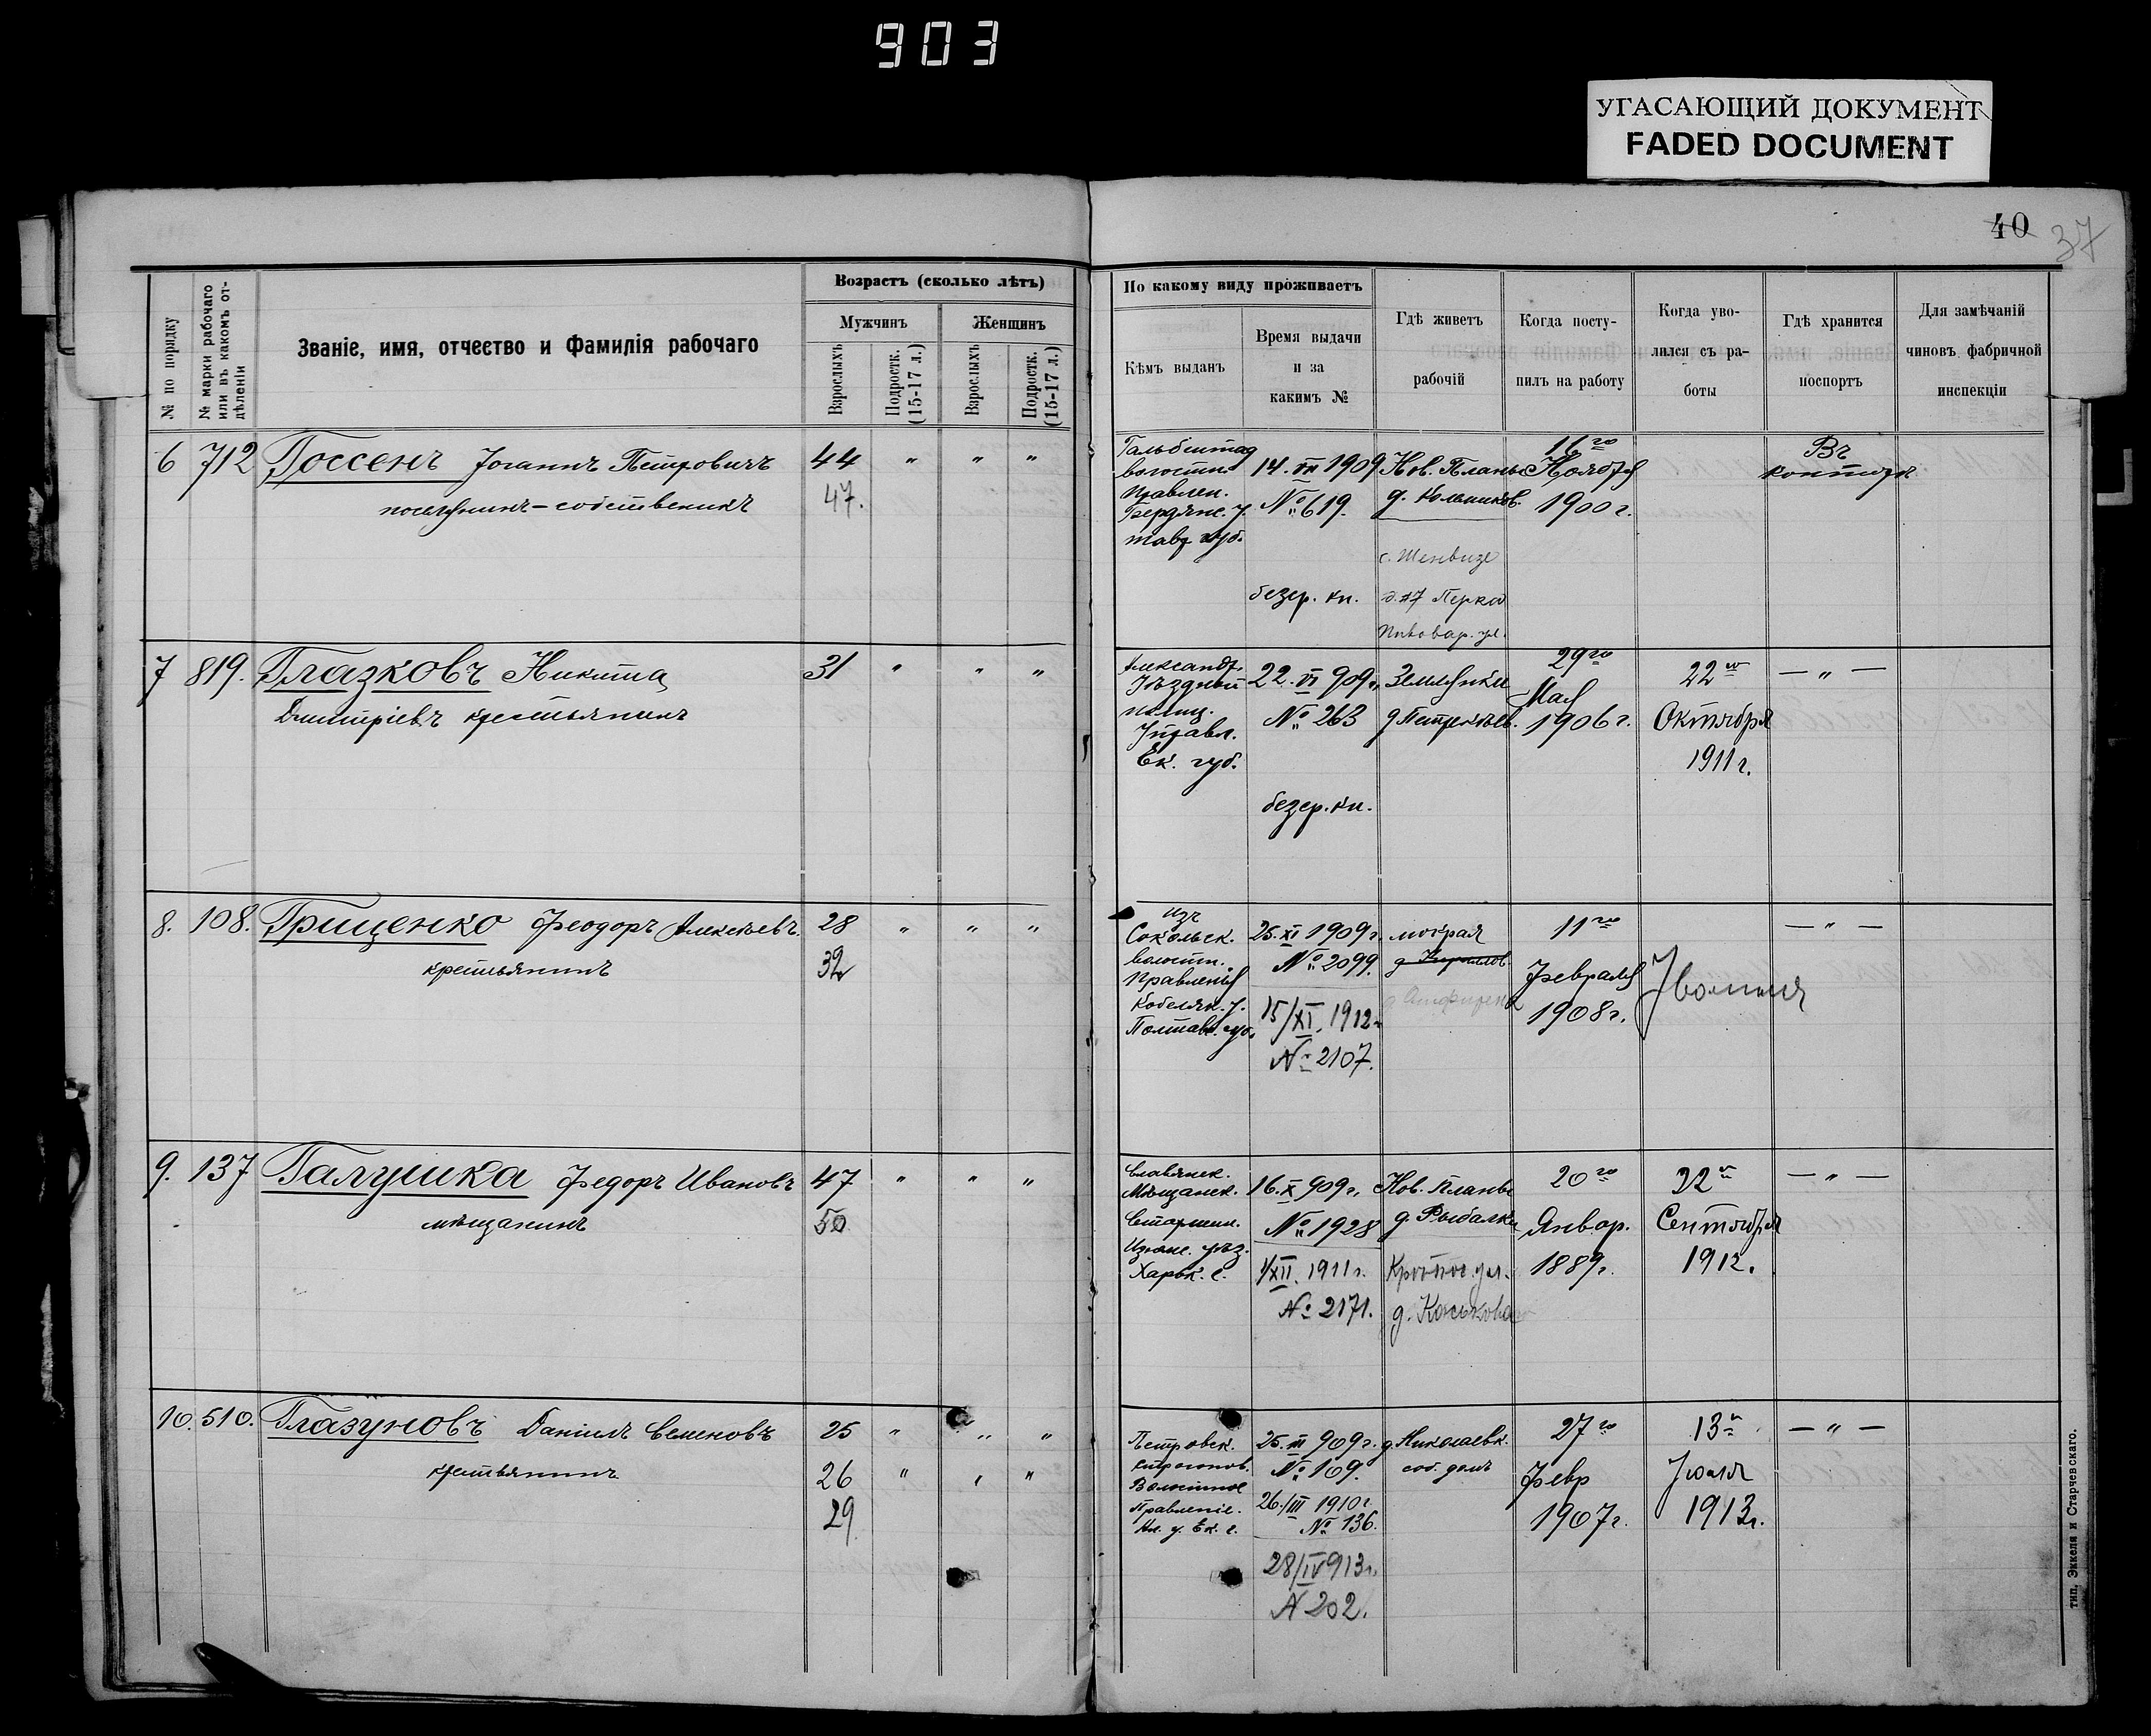 903
УГАСАЮЩИЙ ДОКУМЕНТ
FADED DOCUMENT
40
37
№ по порядку
№ марки рабочаго или въ какомъ отдѣленіи
Званіе, имя, отчество и фамилія рабочаго
Возрастъ (сколько лѣтъ)
Мужчинъ
Женщинъ
Взрослыхъ
Подростк. (15-17 л.)
Взрослыхъ
Подростк. (15-17 л.)
По какому виду проживаетъ
Кѣмъ выданъ
Время выдачи
и за
какимъ №
Гдѣ живетъ
рабочій
Когда посту-
пилъ на работу
Когда уво-
лился съ ра-
боты
Гдѣ хранится
поспортъ
Для замѣчаній
чиновъ фабричной
инспекціи
6 712 Госсенъ Іоганнъ Петровичъ 44 " " "
поселянинъ-собственникъ 47.
Гальбштад
волостн.
Правлен.
Бердянс. у.
тавр губ.
14. VII 1909
№ 619.
безер. кн.
Нов. Планы
д. Кольников.
с. Шенвизе
д. 17 Перка
Пивовар. ул.
16го
Ноября
1900 г.
Въ
конторѣ
7 819. Глазковъ Никита 31 " " "
Дмитріевъ крестьянинъ
Александр.
Уѣздный
полиц.
Управл.
Ек. губ.
22. VI 909 г.
№ 263
безер. кн.
Землянки
29го
Мая
1906 г.
22го
Октября
1911 г.
— " —
8. 108. Грищенко Феодоръ Алексѣевъ. 28 " " "
крестьянинъ 32
Изъ
Сокольск.
волостн.
Правленія
Кобеляк. у.
Полтавс. губ.
25. XI 1909 г.
№ 2099.
15/XI. 1912 г.
№ 2107.
мокрая
11го
Февраля
1908 г.
Уволился
— " —
9. 137 Галушка Федоръ Ивановъ 47 " " "
мѣщанинъ 50
Славянск.
Мѣщанск.
Старшин.
Изюмс. уѣз.
Харьк. г.
16. X 909 г.
№ 1928
1/XII. 1911 г.
№ 2171.
Нов. Планы
д. Рыбалки
д. Каськова
20го
Январ.
1889 г.
22го
Сентября
1912.
— " —
10. 510. Глазуновъ Даніилъ Семеновъ 25 " " "
крестьянинъ 26 " " "
29
Петровск.
Волостное
Правленіе.
Ал. у. Ек. г.
25. III 909 г.
№ 109.
26/III 1910 г.
№ 136.
28/IV 913 г.
№ 202.
д. Николаевк.
соб. домъ
27го
Февр
1907 г.
13го
Іюля
1913 г.
— " —
тип. Эккеля и Старчевскаго.